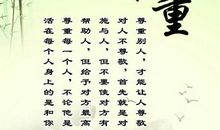 重
尊重别人，才能让人尊敬
对人不尊敬，首先就是对
施与人，但不要使对方有
帮助人，但给予对方最高
尊重每一个人，不论他是
活在每个人身上的是和你